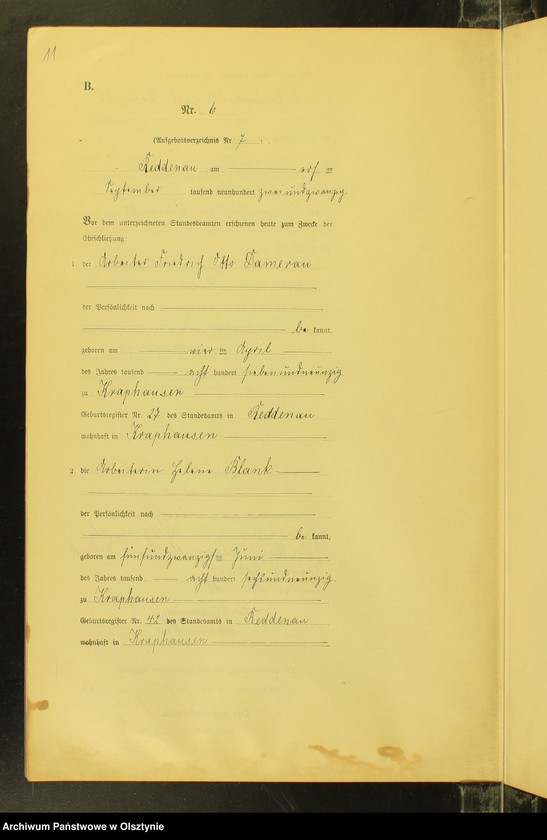 11
B.
Nr. 6
(Aufgebotsverzeichnis Nr. 7
Reddenau am
September tausend neunhundert zweiundzwanzig
Vor dem unterzeichneten Standesbeamten erschienen heute zum Zwecke der
Eheschließung:
1. der Arbeiter Friedrich Otto Damerau
der Persönlichkeit nach
be kannt,
geboren am vier ten April
des Jahres tausend acht hundert siebenundneunzig
zu Kraphausen
Geburtsregister Nr. 27 des Standesamts in Reddenau
wohnhaft in Kraphausen
2. die Arbeiterin Helene Blank
der Persönlichkeit nach
be kannt,
geboren am fünfundzwanzigsten Juni
des Jahres tausend acht hundert sechsundneunzig
zu Kraphausen
Geburtsregister Nr. 42 des Standesamts in Reddenau
wohnhaft in Kraphausen
Archiwum Państwowe w Olsztynie